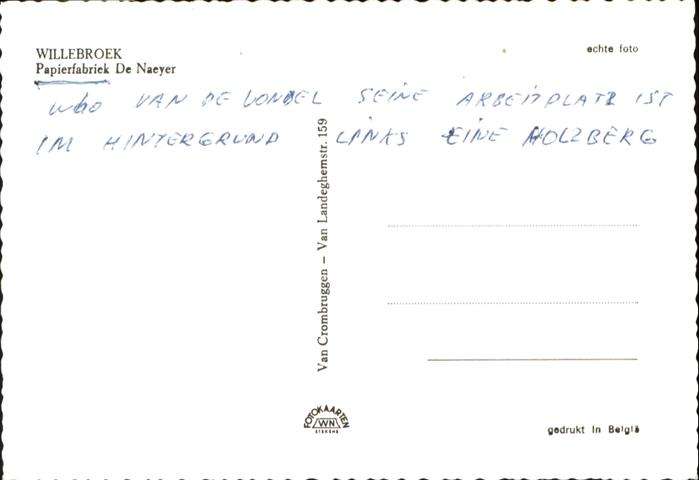 WILLEBROEK
Papierfabriek De Naeyer
echte foto
who VAN DE VONDEL SEINE ARBEITPLATZ IST
IM HINTERGRUND LINKS EINE HOLZBERG
Van Crombruggen – Van Landeghemstr. 159
FOTOKAARTEN
WN
gedrukt in België